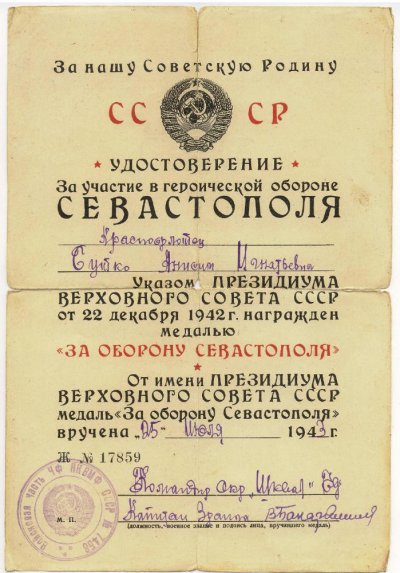 За нашу Советскую Родину
СС СР
УДОСТОВЕРЕНИЕ
За участие в героической обороне
СЕВАСТОПОЛЯ
Краснофлотец
Бутко Анисия Игнатьевна
Указом ПРЕЗИДИУМА
ВЕРХОВНОГО СОВЕТА СССР
от 22 декабря 1942 г. награжден
медалью
«ЗА ОБОРОНУ СЕВАСТОПОЛЯ»
От имени ПРЕЗИДИУМА
ВЕРХОВНОГО СОВЕТА СССР
медаль «За оборону Севастополя»
вручена „25" Июля 1943 г.
Ж № 17859
Командир
Капитан
М. П.
(должность, военное звание и подпись лица, вручившего медаль)
часть ЧФ НКВМФ СССР № 7450